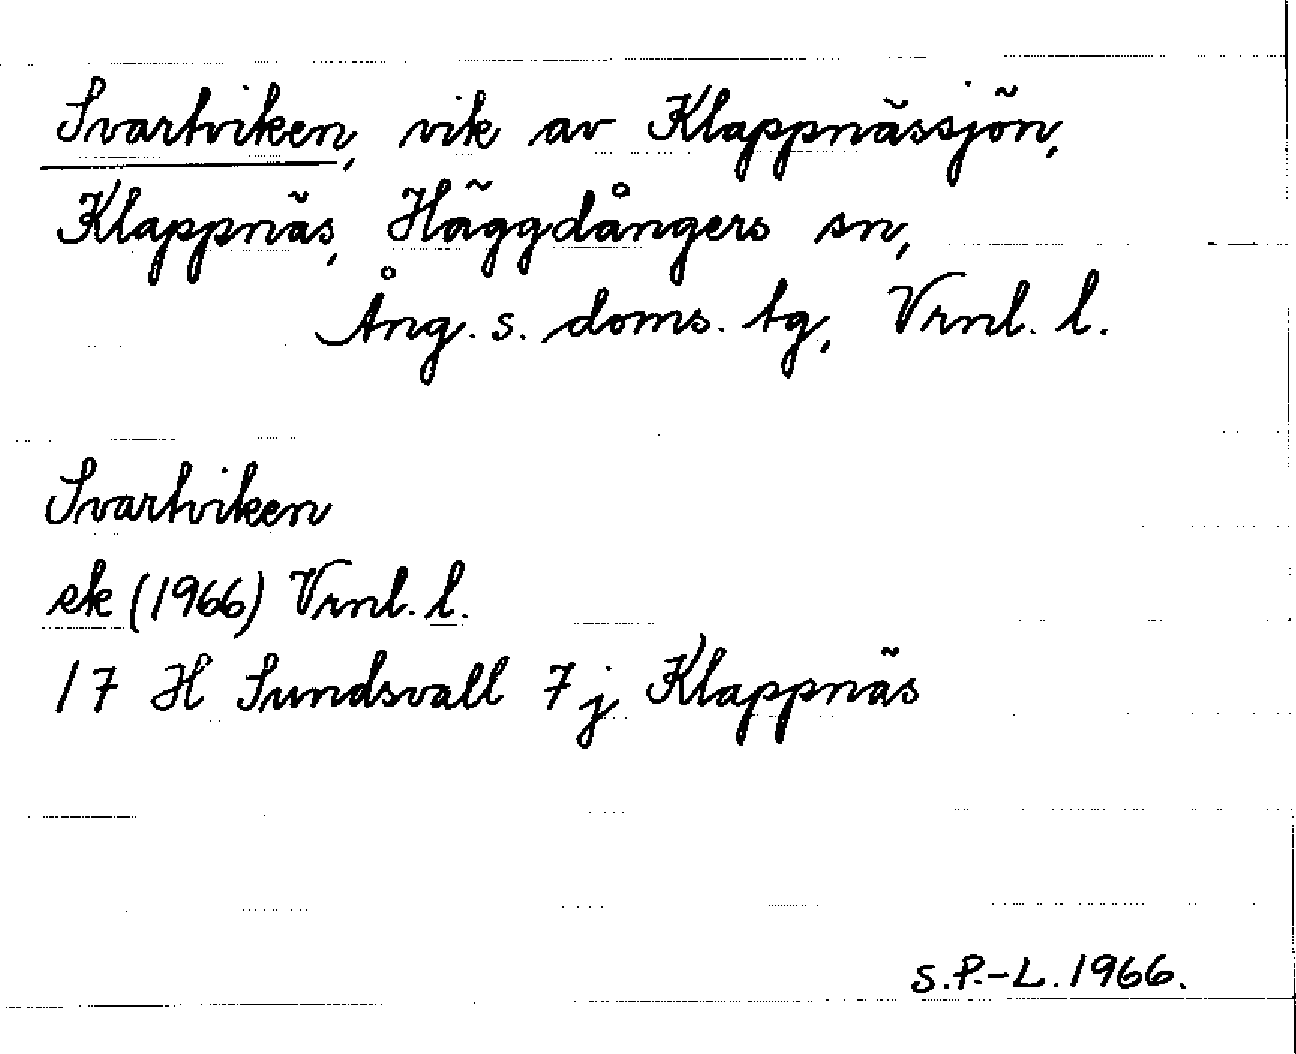 Svartviken, vik av Klappnässjön,
Klappnäs, Häggdångers sn,
Ång. s. doms. tg, Vrnl. l.
Svartviken
ek (1966) Vrnl. l.
17 H Sundsvall 7 j Klappnäs
S.P.-L. 1966.